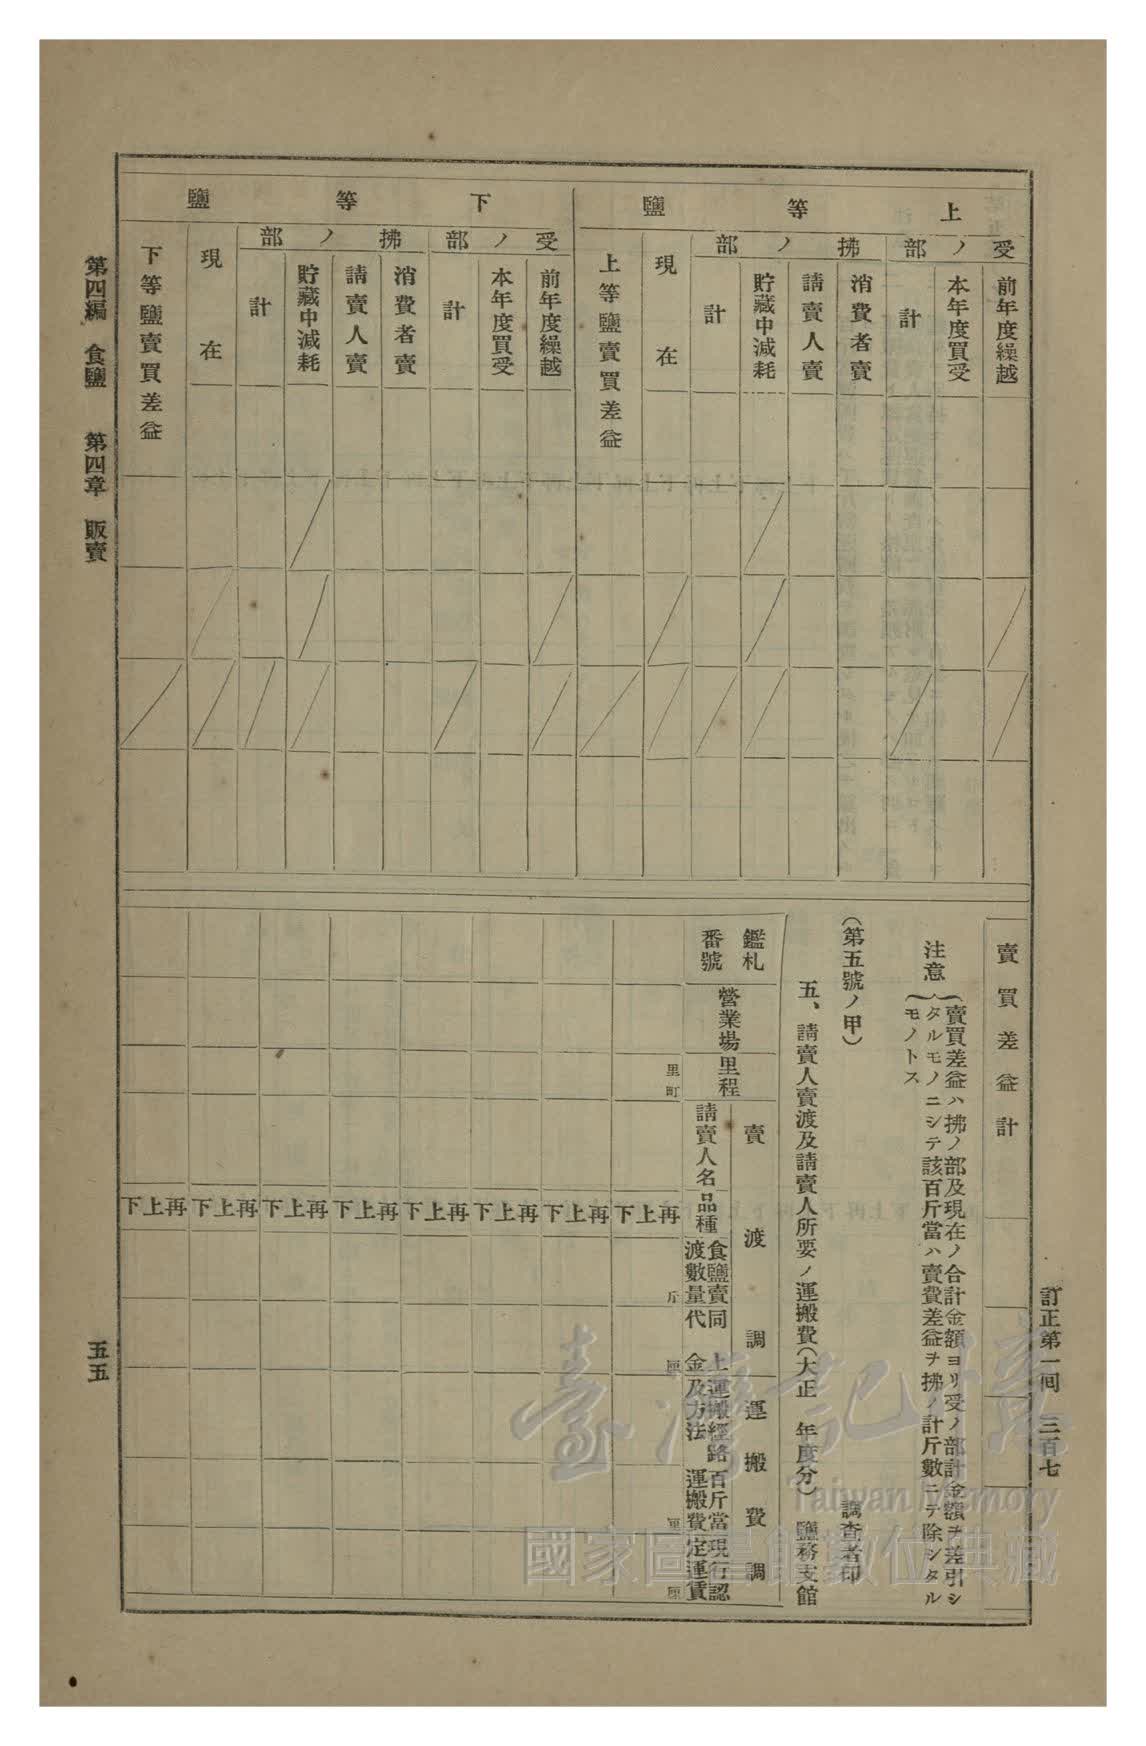 訂正第一回 三百七
上等鹽
受ノ部
前年度繰越
本年度買受
計
拂ノ部
消費者賣
請賣人賣
貯藏中減耗
計
現在
上等鹽賣買差益
下等鹽
受ノ部
前年度繰越
本年度買受
計
拂ノ部
消費者賣
請賣人賣
貯藏中減耗
計
現在
下等鹽賣買差益
賣買差益計
注意
賣買差益ハ拂ノ部及現在ノ合計金額ヨリ受ノ部計金額ヲ差引シ
タルモノニシテ該百斤當ハ賣費差益ヲ拂ノ計斤數ニテ除シタル
モノトス
(第五號ノ甲)
調查者印
五、請賣人賣渡及請賣人所要ノ運搬費(大正 年度分) 鹽務支館
賣渡調
運搬費調
鑑札
番號
營業場
里程
請賣人名
品種
食鹽賣
渡數量
同上
代金
運搬經路
及方法
百斤當
運搬費
現行認
定運賃
里町
斤
厘
厘
厘
再上下
再上下
再上下
再上下
再上下
再上下
再上下
再上下
第四編 食鹽 第四章 販賣
五五
臺灣記憶
Taiwan Memory
國家圖書館數位典藏